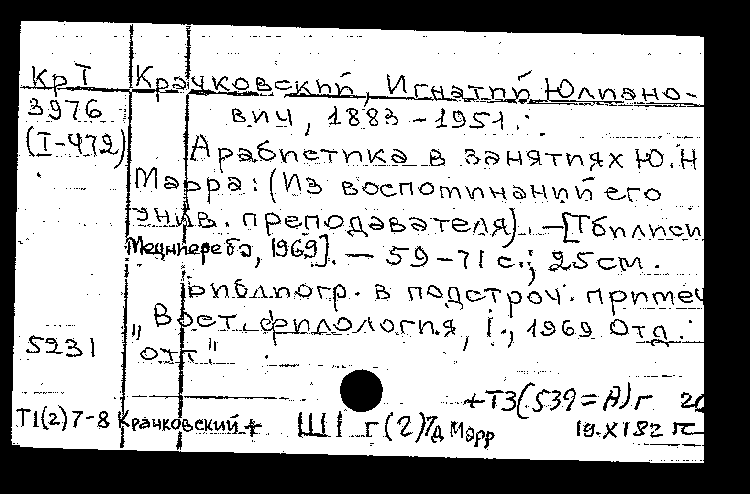 КрТ Крачковский, Игнатий Юлиано-
3976 вич, 1883-1951.:
(I-472) Арабистика в занятиях Ю.Н
Марра: (Из воспоминаний его
унив. преподавателя). —[Тбилиси
Мецниереба, 1969]. — 59-71 с.; 25см.
Библиогр. в подстроч. примеч
"Вост. филология, I., 1969 Отд.
5231 отт"
+Т3(539=А)г 20
Т1(2)7-8 Крачковский + Ш1 г(2)7д Марр 19.XI 82